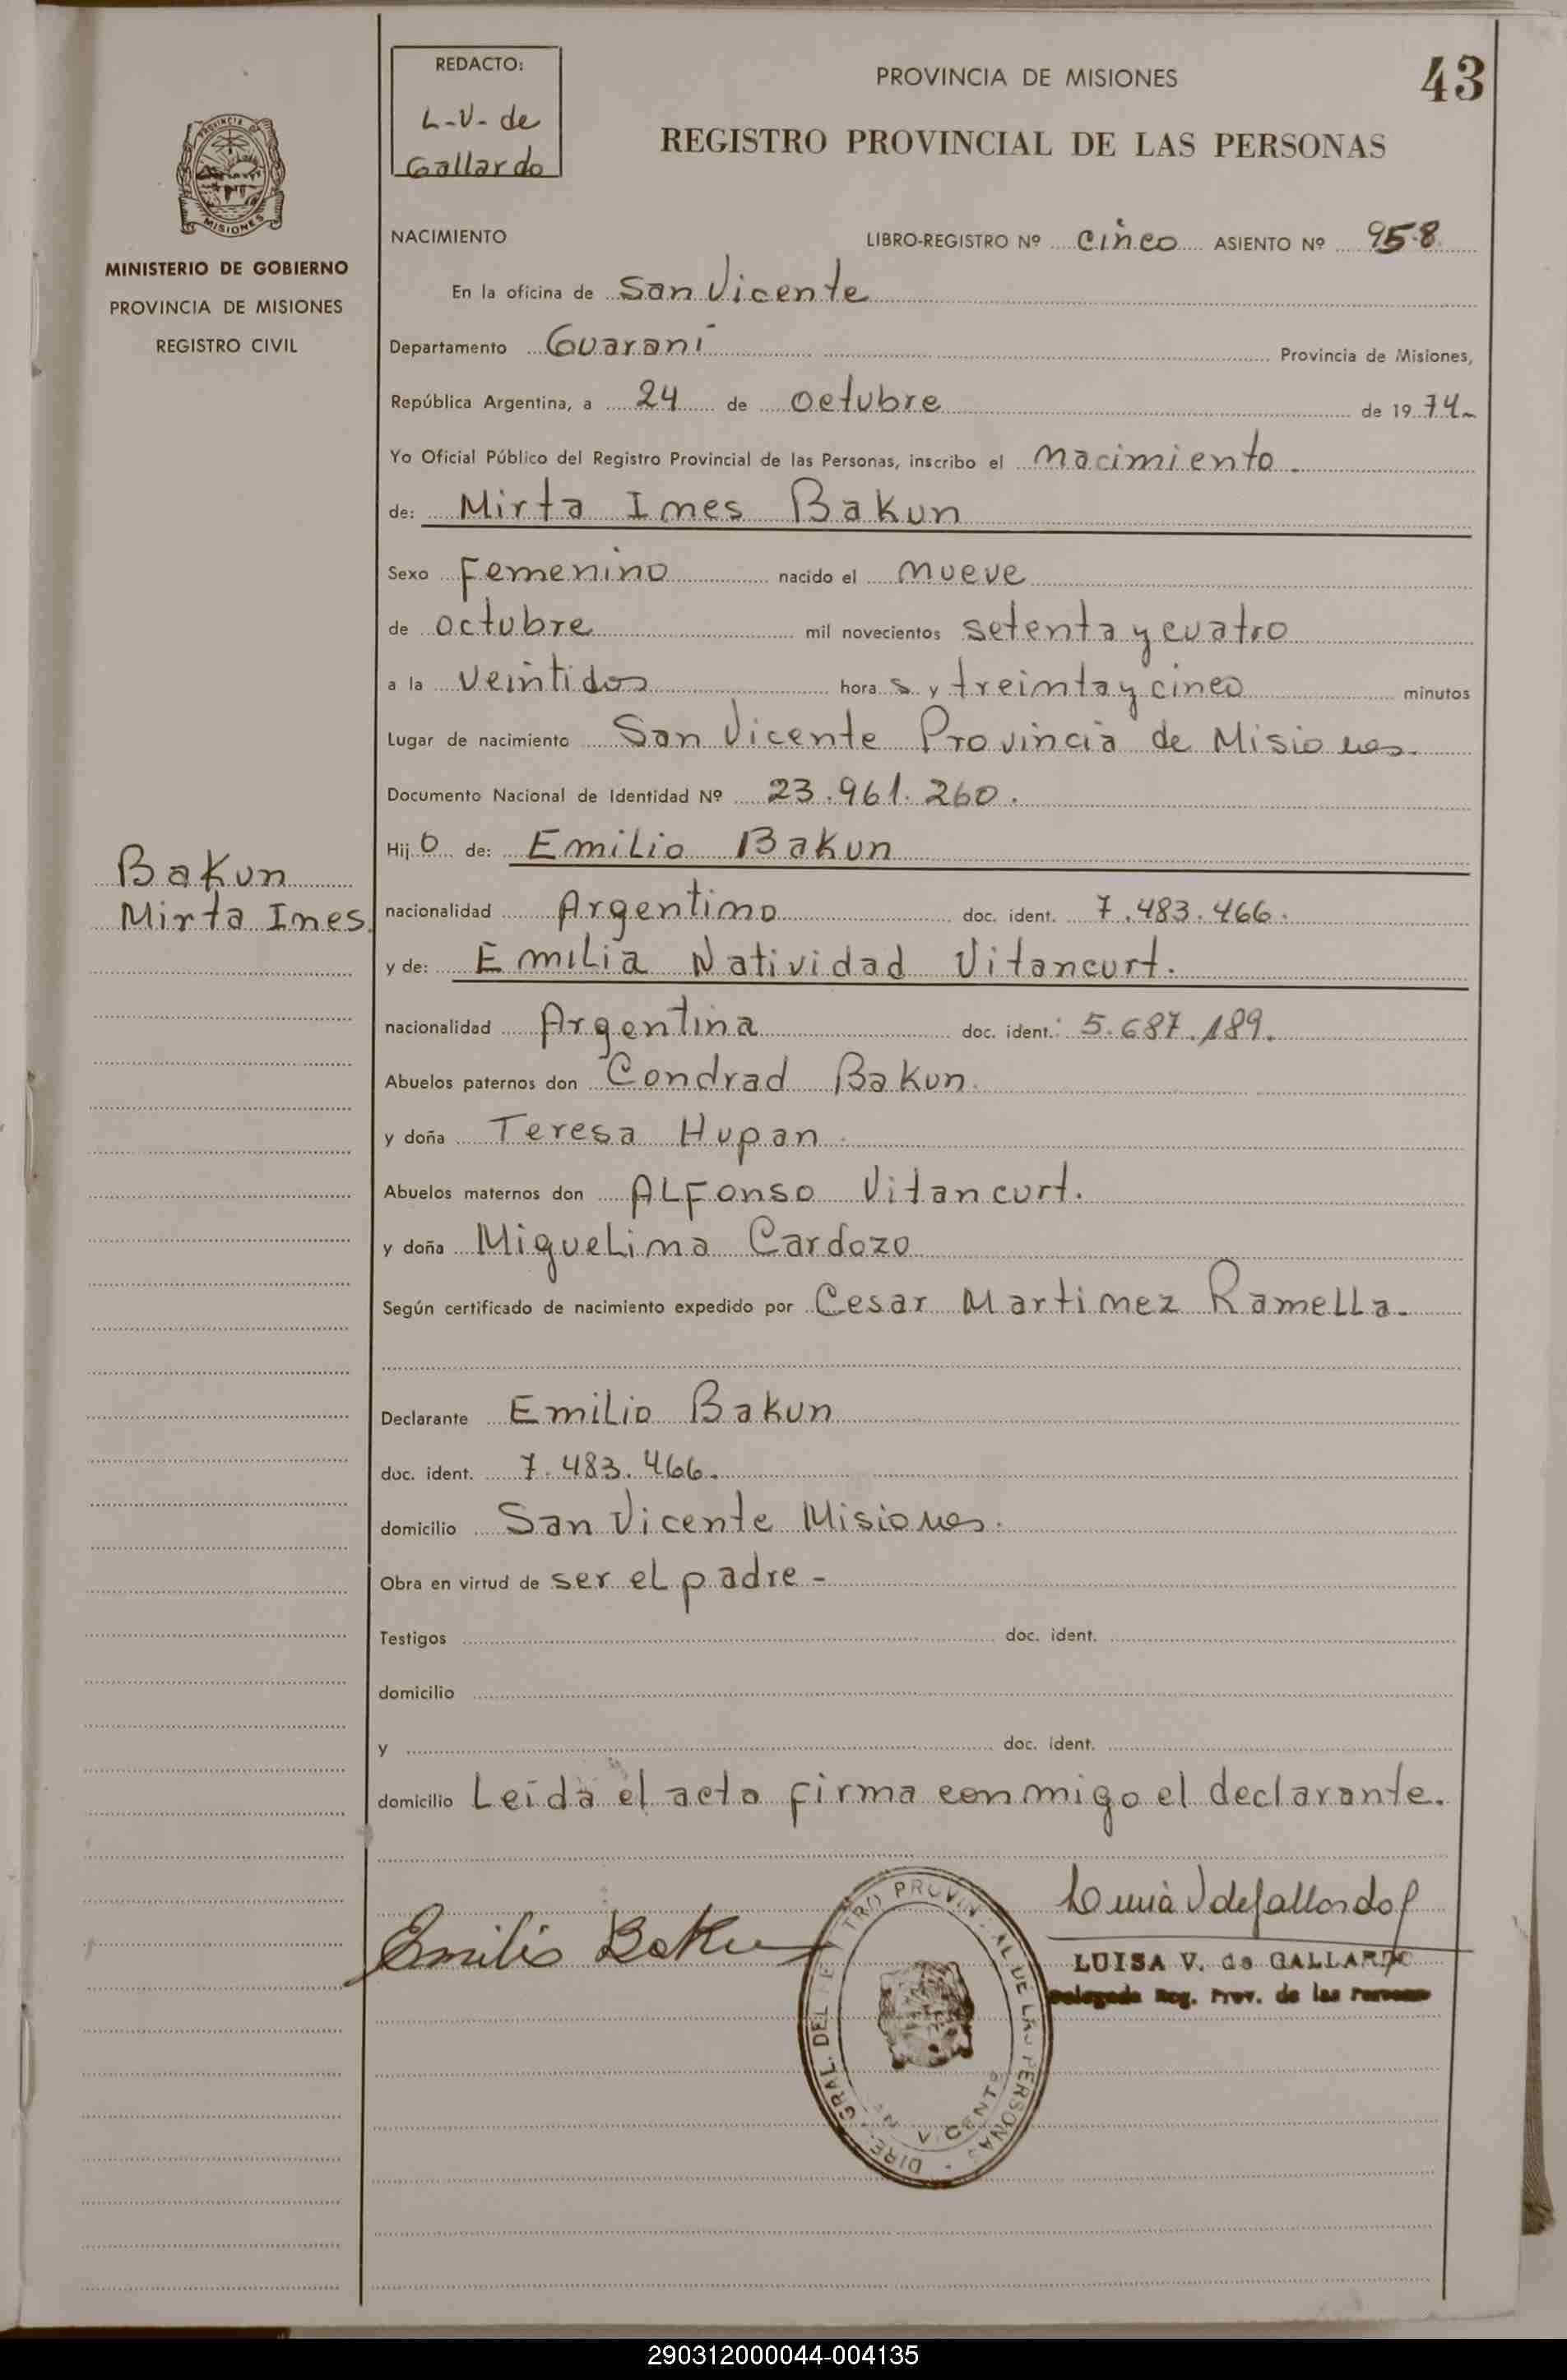 REDACTO:
L-V- de
Gallardo
PROVINCIA DE MISIONES
43
REGISTRO PROVINCIAL DE LAS PERSONAS
PROVINCIA DE
MISIONES
MINISTERIO DE GOBIERNO
PROVINCIA DE MISIONES
REGISTRO CIVIL
NACIMIENTO
LIBRO-REGISTRO Nº cinco ASIENTO Nº 958
En la oficina de San Vicente
Departamento Guaraní Provincia de Misiones,
República Argentina, a 24 de octubre de 19 74-
Yo Oficial Público del Registro Provincial de las Personas, inscribo el nacimiento.
de: Mirta Ines Bakun
Sexo Femenino nacido el nueve
de octubre mil novecientos setenta y cuatro
a la veintidos hora s y treinta y cinco minutos
Lugar de nacimiento San Vicente Provincia de Misiones.
Documento Nacional de Identidad Nº 23.961.260.
Hij o de: Emilio Bakun
Bakun
Mirta Ines.
nacionalidad Argentino doc. ident. 7.483.466.
y de: Emilia Natividad Vitancurt.
nacionalidad Argentina doc. ident.: 5.687.189.
Abuelos paternos don Condrad Bakun.
y doña Teresa Hupan.
Abuelos maternos don ALFonso Vitancurt.
y doña Miguelina Cardozo
Según certificado de nacimiento expedido por Cesar Martinez Ramella.
Declarante Emilio Bakun
doc. ident. 7.483.466.
domicilio San Vicente Misiones.
Obra en virtud de ser el padre -
Testigos doc. ident.
domicilio
y doc. ident.
domicilio Leída el acta firma conmigo el declarante.
Emilio Baku
LUISA V. de GALLARDO
Delegada Reg. Prov. de las Personas
DIRE. GRAL. DEL RE TRO PROVIN AL DE LAS PERSONAS
N VICENTE
290312000044-004135